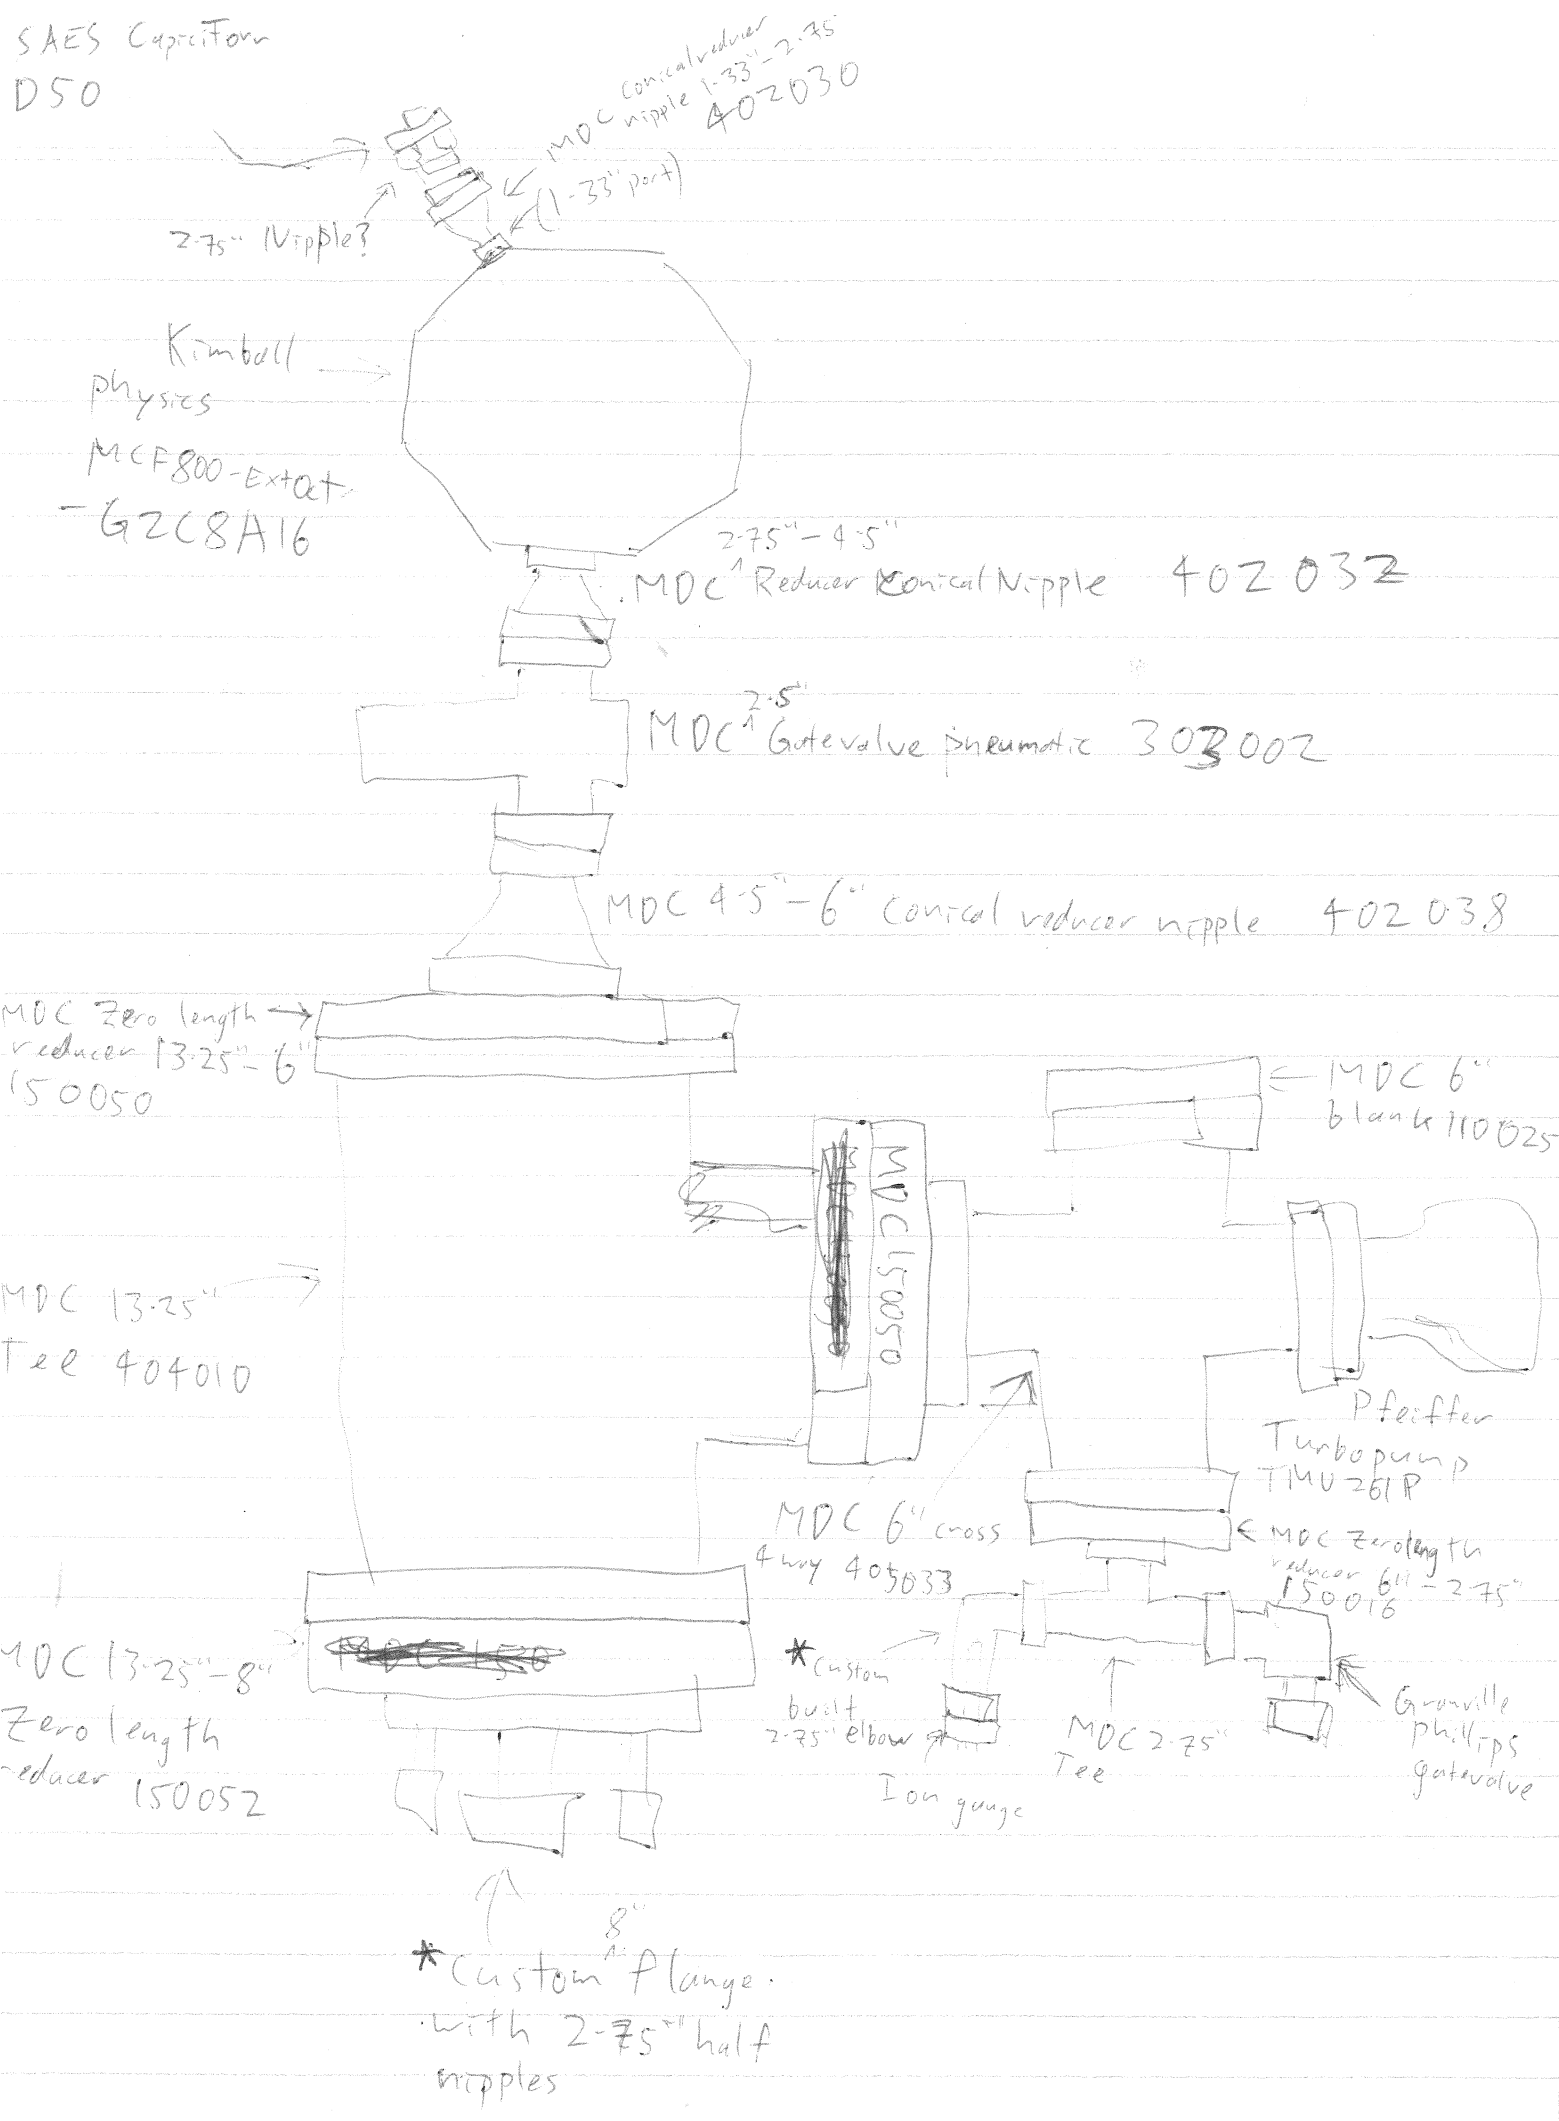 SAES CapiciTorr
D50
conical reducer
MDC nipple 1-33" - 2-75
402030
(1-33" port)
2-75" Nipple?
Kimball
physics
MCF800-ExtOct
-G2C8A16
2-75" - 4-5"
MDC ^ Reducer Conical Nipple 402032
2-5"
MDC ^ Gatevalve pneumatic 303002
MDC 4-5" - 6" Conical reducer nipple 402038
MDC Zero length
reducer 13-25" - 6"
150050
MDC 6"
blank 110025
MDC 150050
MDC 13-25"
Tee 404010
Pfeiffer
Turbopump
TMU 261P
MDC 6" cross
4 way 405033
MDC Zero length
reducer 6" - 2-75"
150016
MDC 13-25" - 8"
Zero length
reducer 150052
* Custom
built
2-75" elbow
Ion gauge
MDC 2-75"
Tee
Granville
phillips
gatevalve
8"
* Custom ^ flange.
with 2-75" half
nipples